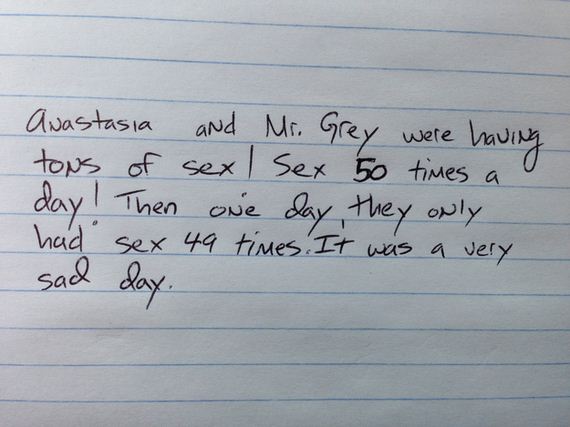 Anastasia and Mr. Grey were having
tons of sex! Sex 50 times a
day! Then one day, they only
had sex 49 times. It was a very
sad day.